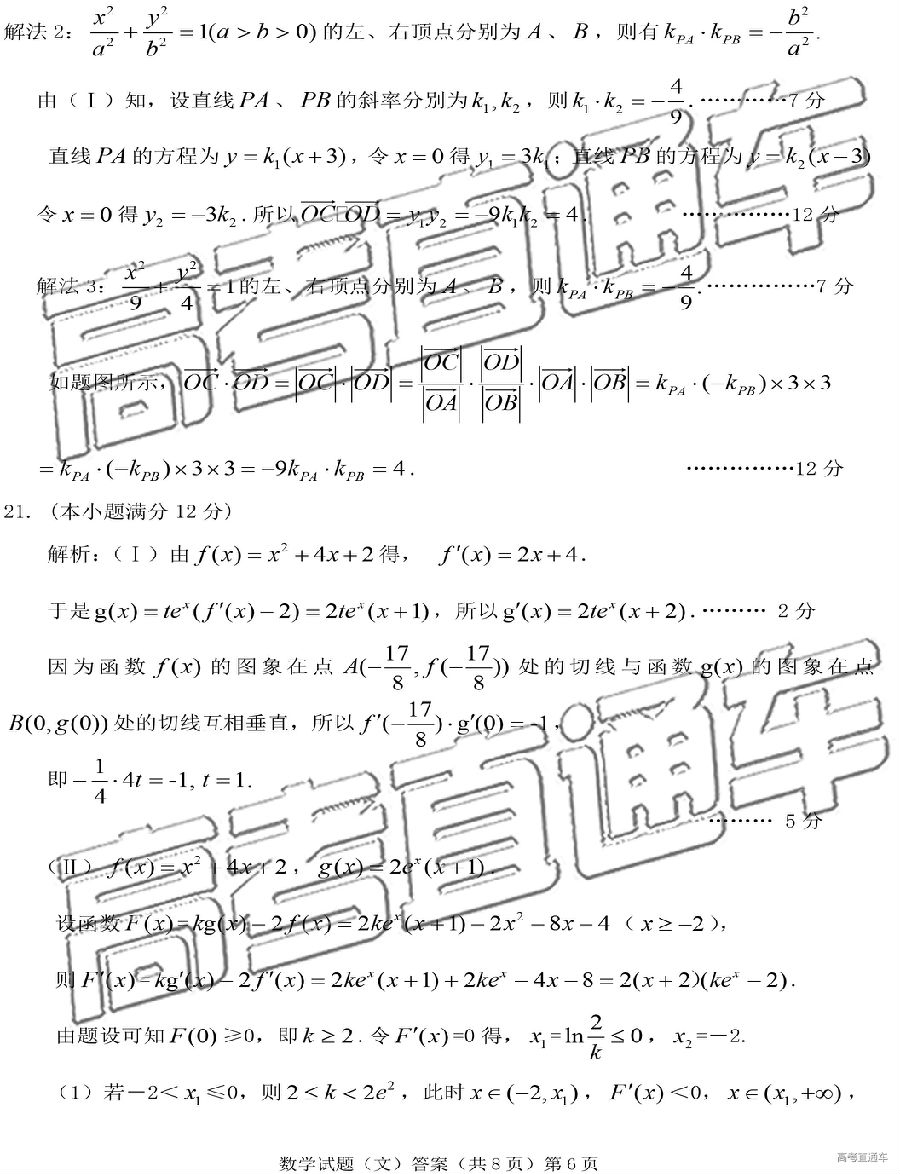 解法2：x²/a² + y²/b² = 1(a > b > 0) 的左、右顶点分别为 A 、 B ，则有 k_PA · k_PB = −b²/a².
由（Ⅰ）知，设直线 PA 、 PB 的斜率分别为 k₁,k₂ ，则 k₁·k₂ = −4/9 . …………7 分
直线 PA 的方程为 y = k₁(x+3)，令 x = 0 得 y₁ = 3k₁；直线 PB 的方程为 y = k₂(x−3)
令 x = 0 得 y₂ = −3k₂ . 所以 OC⃗·OD⃗ = y₁y₂ = −9k₁k₂ = 4 . ……………12 分
解法 3：x²/9 + y²/4 = 1的左、右顶点分别为 A 、 B ，则 k_PA · k_PB = −4/9 . ……………7 分
如题图所示，OC⃗ · OD⃗ = |OC⃗| · |OD⃗| = |OC⃗|/|OA⃗| · |OD⃗|/|OB⃗| · |OA⃗| · |OB⃗| = k_PA · (−k_PB)×3×3
= k_PA · (−k_PB)×3×3 = −9k_PA · k_PB = 4 . ……………12 分
21． (本小题满分 12 分)
解析：（Ⅰ）由 f(x) = x² + 4x + 2 得， f′(x) = 2x + 4．
于是 g(x) = teˣ(f′(x) − 2) = 2teˣ(x+1)，所以 g′(x) = 2teˣ(x+2) . ……… 2 分
因为函数 f(x) 的图象在点 A(−17/8, f(−17/8)) 处的切线与函数 g(x) 的图象在点
B(0, g(0)) 处的切线互相垂直，所以 f′(−17/8)·g′(0) = -1，
即 −1/4 · 4t = -1, t = 1.
……… 5 分
（Ⅱ） f(x) = x² + 4x + 2 ，g(x) = 2eˣ(x+1) .
设函数 F(x) = kg(x) − 2f(x) = 2keˣ(x+1) − 2x² − 8x − 4（ x ≥ −2 ），
则 F′(x) = kg′(x) − 2f′(x) = 2keˣ(x+1) + 2keˣ − 4x − 8 = 2(x+2)(keˣ − 2) .
由题设可知 F(0) ≥0，即 k ≥ 2 . 令 F′(x) =0 得， x₁=ln 2/k ≤ 0 ， x₂=－2.
（1）若－2＜ x₁ ≤0，则 2 < k < 2e² ，此时 x∈(−2, x₁) ， F′(x) <0， x∈(x₁,+∞) ，
数学试题（文）答案（共 8 页）第 6 页
高考直通车
高考直通车
高考直通车